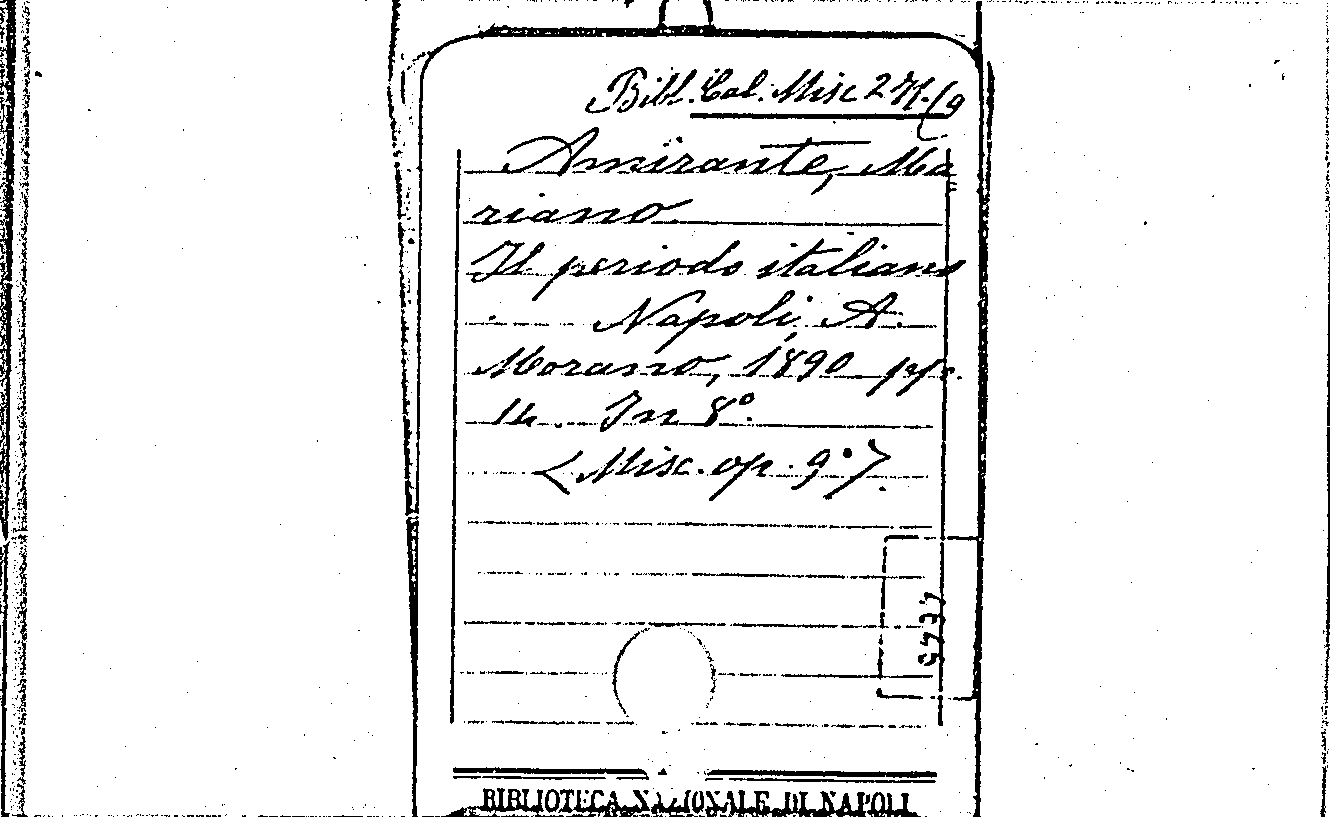 Bibl. Cal. Misc 2 K. (9
Amirante, Ma
riano
Il periodo italiano
Napoli, A.
Morano, 1890 pp.
14. In 8°.
(Misc. op. 9°).
BIBLIOTECA NAZIONALE DI NAPOLI